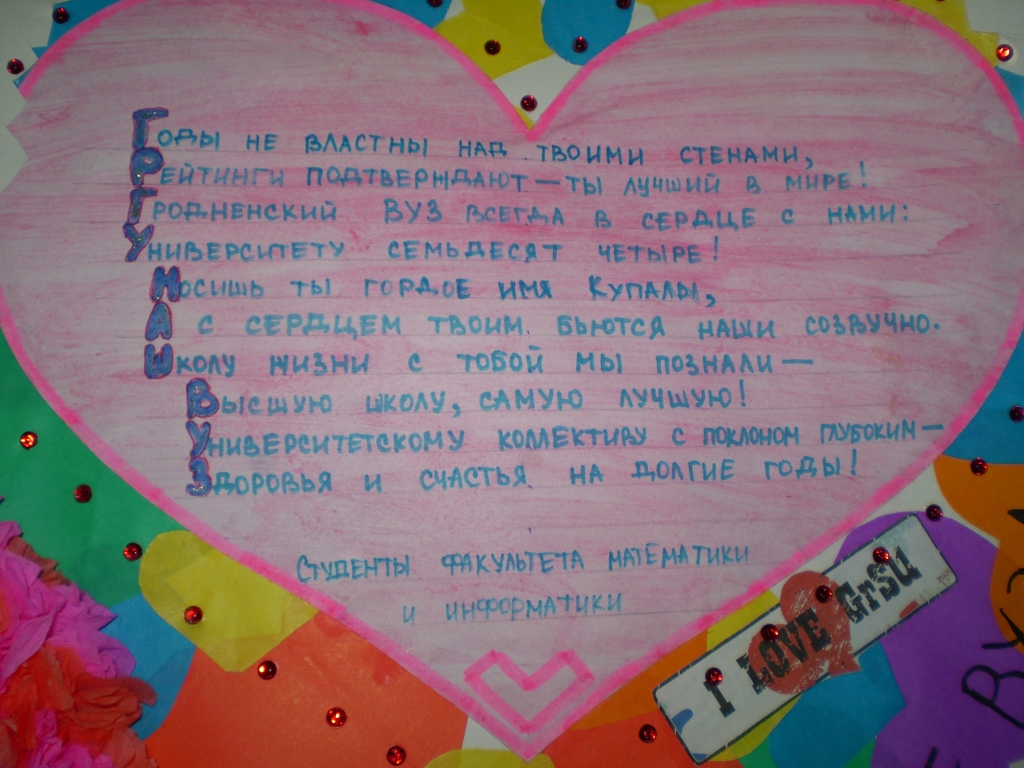 Годы не властны над твоими стенами,
Рейтинги подтверждают — ты лучший в мире!
Гродненский вуз всегда в сердце с нами:
Университету семьдесят четыре!
Носишь ты гордое имя Купалы,
А с сердцем твоим бьются наши созвучно.
Школу жизни с тобой мы познали —
Высшую школу, самую лучшую!
Университетскому коллективу с поклоном глубоким —
Здоровья и счастья на долгие годы!
Студенты факультета математики
и информатики
I LOVE GrSU